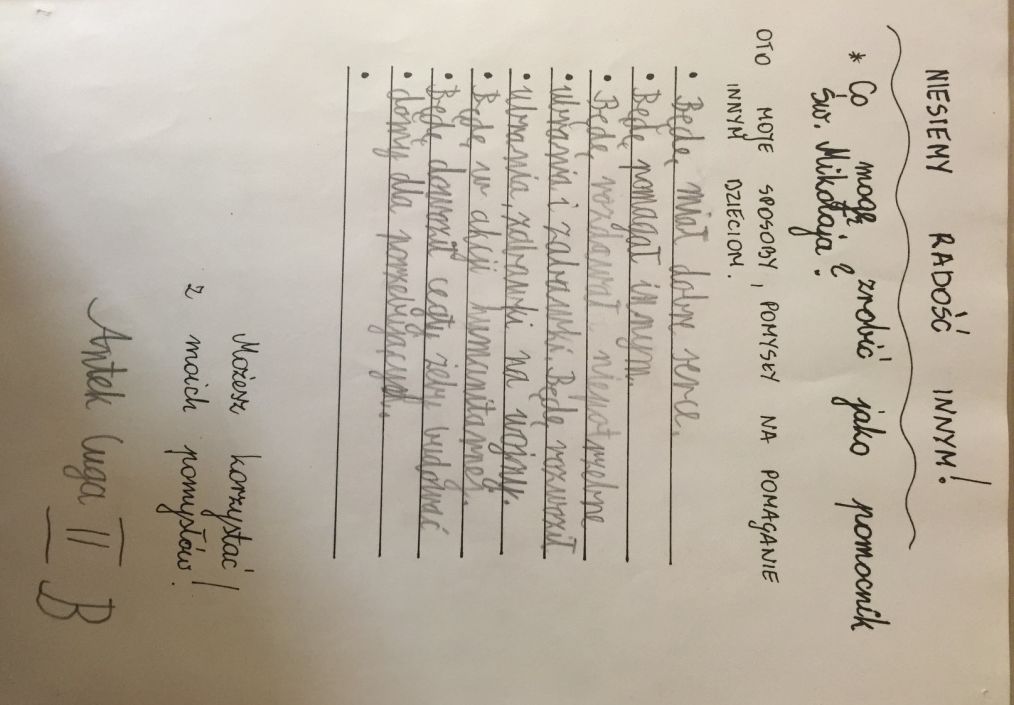 NIESIEMY RADOŚĆ INNYM!
* Co mogę zrobić jako pomocnik
św. Mikołaja?
OTO MOJE SPOSOBY, POMYSŁY NA POMAGANIE
INNYM DZIECIOM.
• Będę miał dobre serce.
• Będę pomagał innym.
• Będę rozdawał niepotrzebne
• ubrania i zabawki. Będę rozwoził
• ubrania, zabawki na wojny.
• Będę w akcji humanitarnej.
• Będę dowoził cegły, żeby budować
• domy dla potrzebujących.
•
Możesz korzystać
z moich pomysłów!
Antek Cuga II B